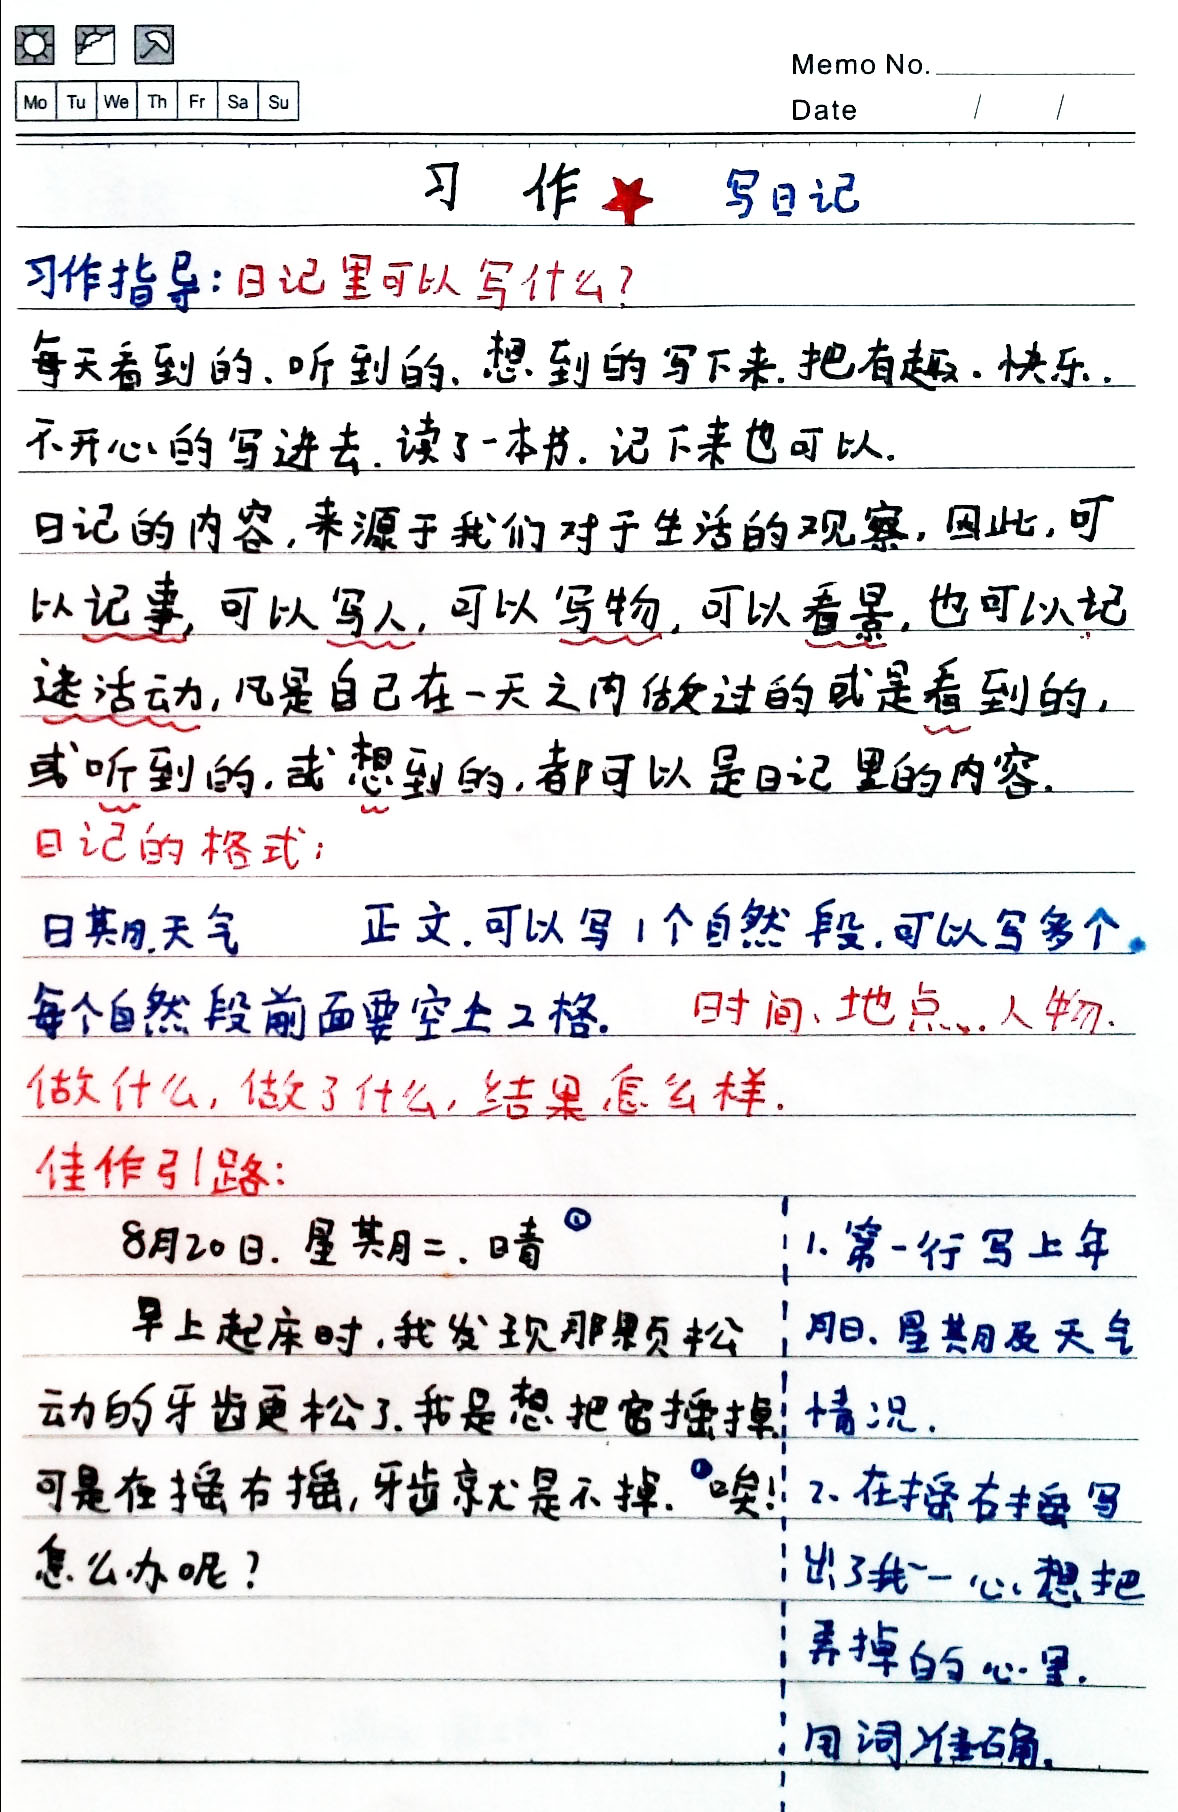 Memo No.
Mo Tu We Th Fr Sa Su
Date / /
习 作 ★ 写日记
习作指导:日记里可以写什么?
每天看到的、听到的、想到的写下来.把有趣.快乐.
不开心的写进去.读了一本书.记下来也可以.
日记的内容,来源于我们对于生活的观察,因此,可
以记事,可以写人,可以写物,可以看景,也可以记
述活动,凡是自己在一天之内做过的或是看到的,
或听到的,或想到的,都可以是日记里的内容.
日记的格式:
日期.天气 正文.可以写1个自然段.可以写多个.
每个自然段前面要空土2格. 时间、地点、人物.
做什么,做了什么,结果怎么样.
佳作引路:
8月20日.星期二.晴①
早上起床时,我发现那颗松
动的牙齿更松了.我是想把它摇掉
可是在摇右摇,牙齿就是不掉.唉!
怎么办呢?
1.第一行写上年
月日、星期及天气
情况.
2.在摇右摇写
出了我一心想把
弄掉的心里.
用词准确.